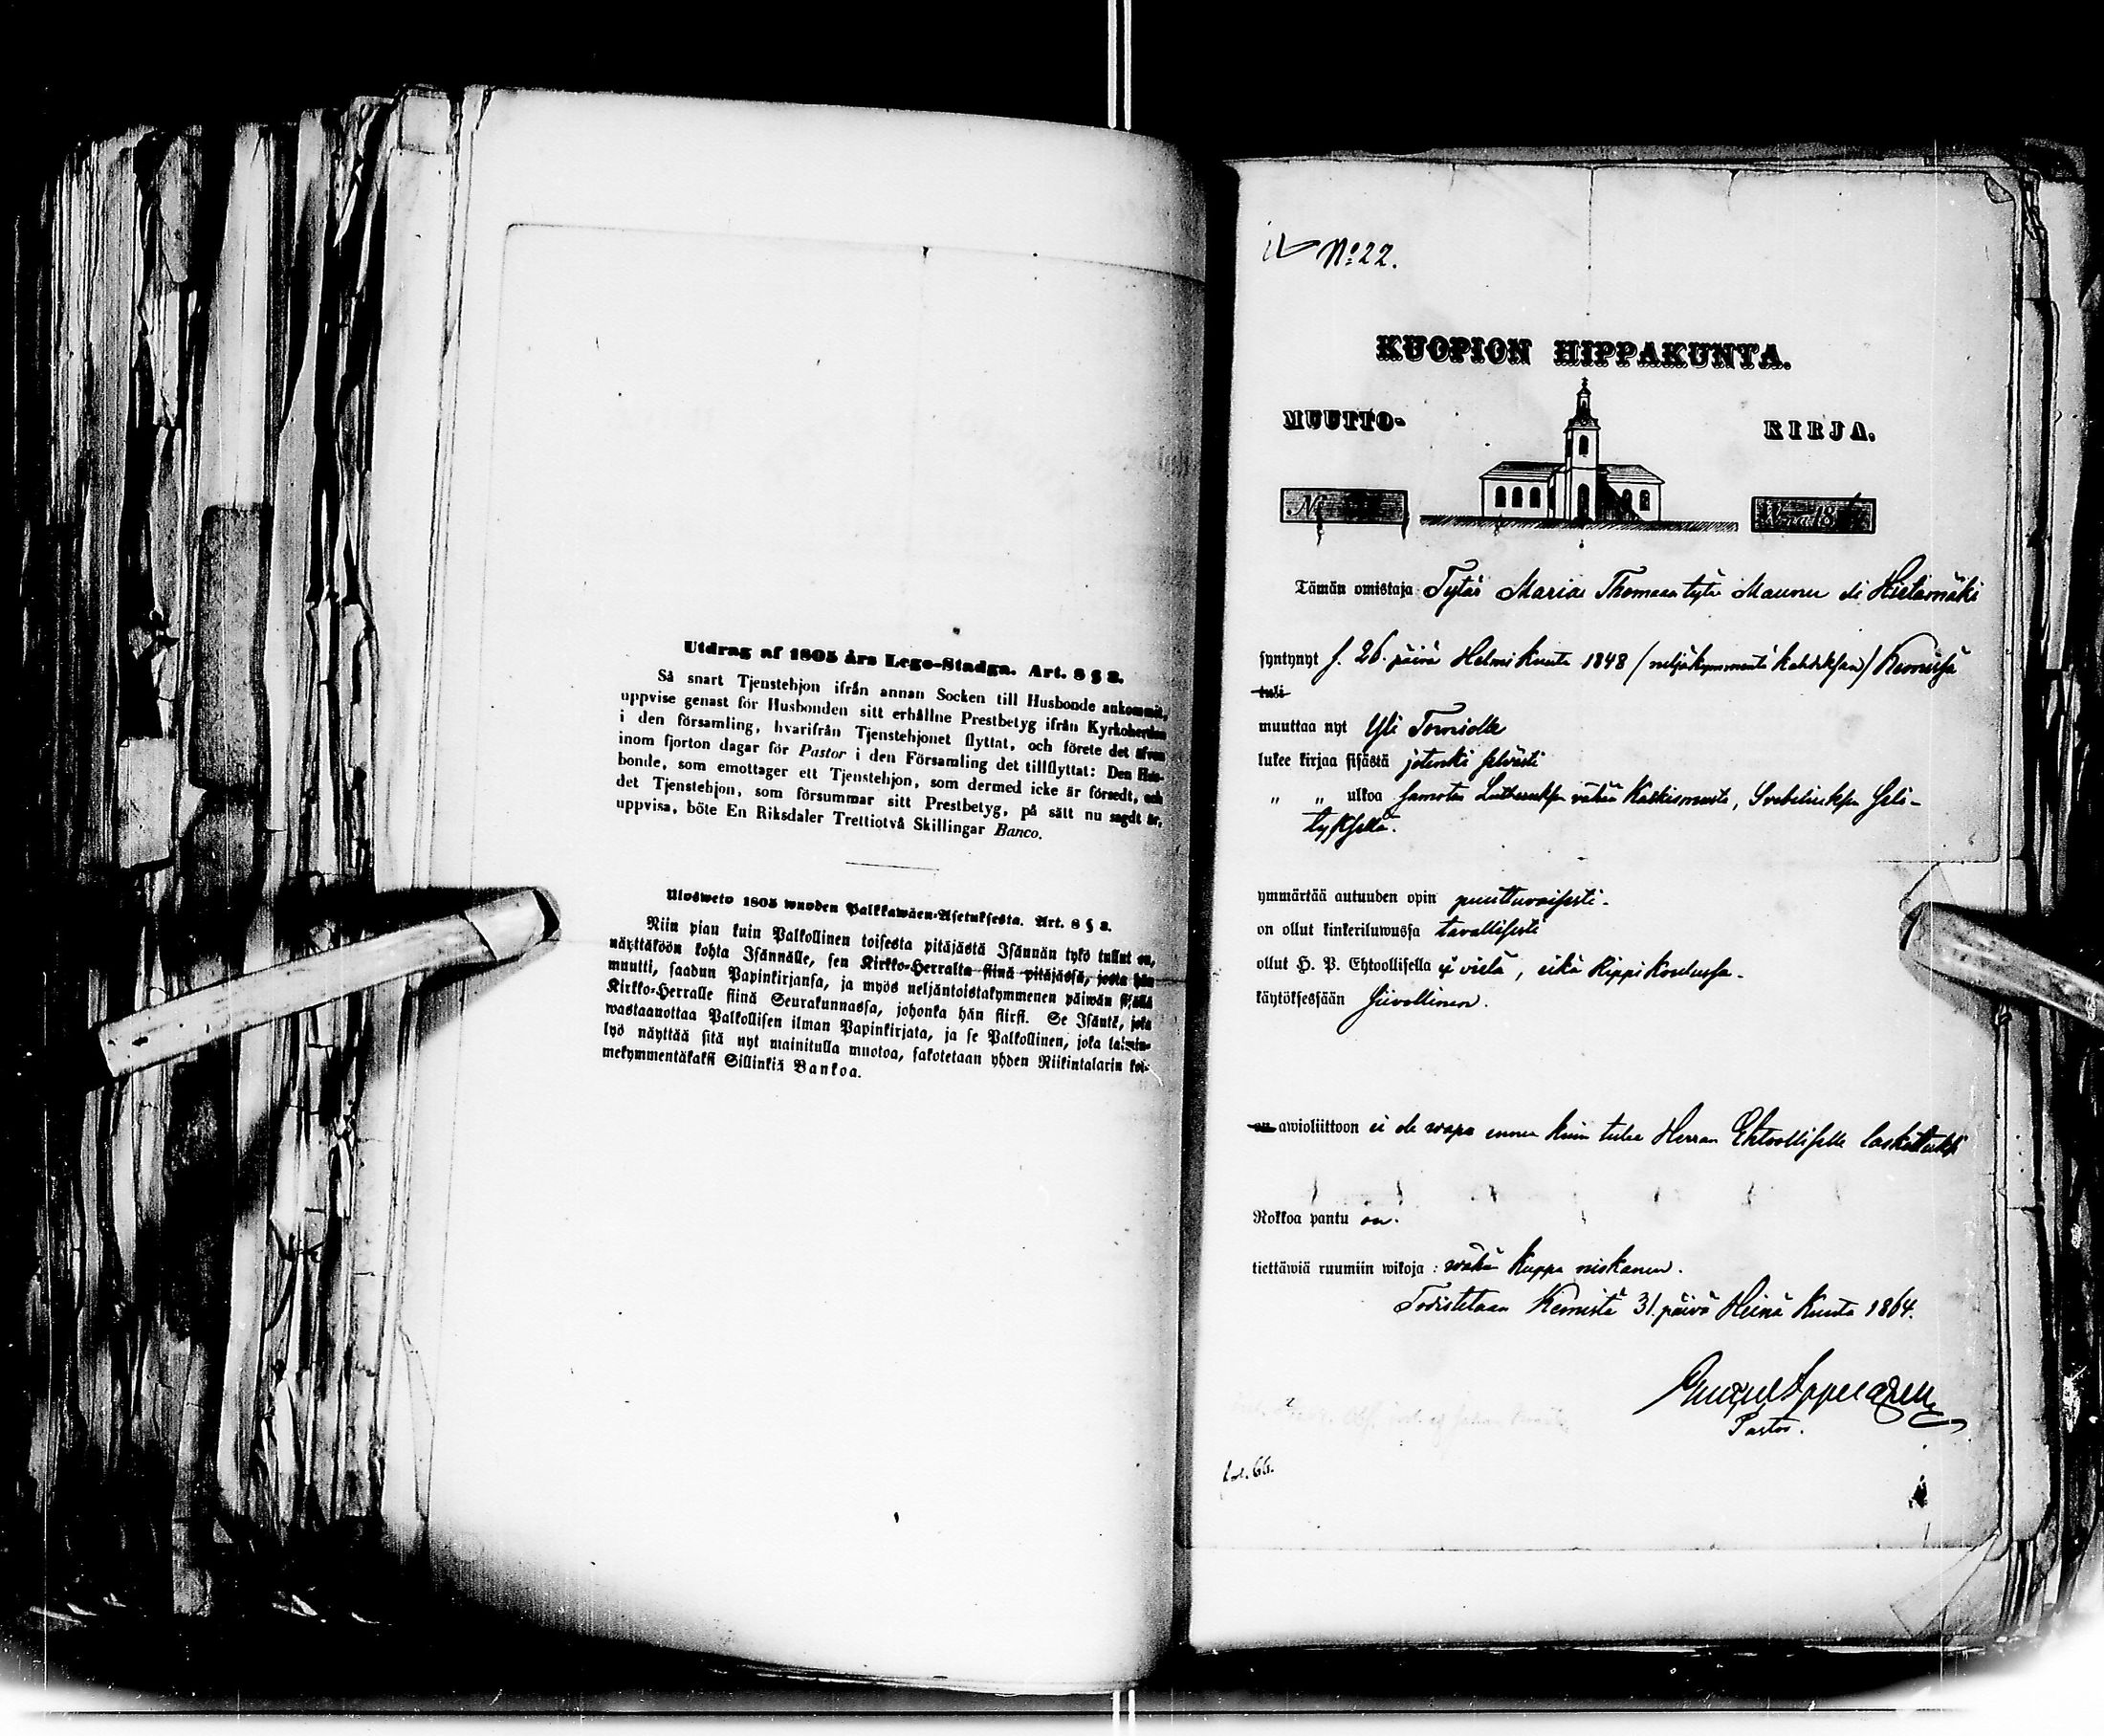 Utdrag af 1805 års Lego-Stadga. Art. 8 § 8.
Så snart Tjenstehjon ifrån annan Socken till Husbonde ankommit,
uppvise genast för Husbonden sitt erhållne Prestbetyg ifrån Kyrkoherden
i den församling, hvarifrån Tjenstehjonet flyttat, och förete det äfven
inom fjorton dagar för Pastor i den Församling det tillflyttat: Den Hus-
bonde, som emottager ett Tjenstehjon, som dermed icke är försedt, och
det Tjenstehjon, som försummar sitt Prestbetyg, på sätt nu sagdt är,
uppvisa, böte En Riksdaler Trettiotvå Skillingar Banco.
Ulosweto 1805 wuoden Palkkawäen-Asetuksesta. Art. 8 § 8.
Niin pian kuin Palkollinen toisesta pitäjästä Isännän tykö tullut on,
näyttäköön kohta Isännälle, sen Kirkko-Herralta siinä pitäjässä, josta hän
muutti, saadun Papinkirjansa, ja myös neljäntoistakymmenen päiwän sisällä
Kirkko-Herralle siinä Seurakunnassa, johonka hän siirsi. Se Isäntä, joka
wastaanottaa Palkollisen ilman Papinkirjata, ja se Palkollinen, joka laimin-
lyö näyttää sitä nyt mainitulla muotoa, sakotetaan yhden Riikintalarin kol-
mekymmentäkaksi Sillinkiä Bankoa.
No 22.
KUOPION HIPPAKUNTA.
MUUTTO- KIRJA.
N
W:na 18
Tämän omistaja Tytär Maria Thomaan tytär Maunu eli Hietamäki
syntynyt s. 26. päivä Helmi Kuuta 1848 (neljäkymmentä kahdeksan) Kemissä
tuli
muuttaa nyt Yli Torniolle
lukee kirjaa sisästä jotenki selvästi
" " ulkoa samoten Lutheruksen vähän Katkismusta, Svebeliuksen seli-
tyksellä.
ymmärtää autuuden opin puuttuvaisesti.
on ollut kinkeriluwussa tavallisesti
ollut H. P. Ehtoollisella ei vielä, eikä Rippi Koulussa.
käytöksessään siivollinen.
on awioliittoon ei ole wapa ennen kuin tulee Herran Ehtoolliselle lasketuksi
Rokkoa pantu on.
tiettäwiä ruumiin wikoja: wähän Kuppa niskanen.
Todistetaan Kemistä 31. päivä Heinä Kuuta 1864.
Pastor.
fol. 66.